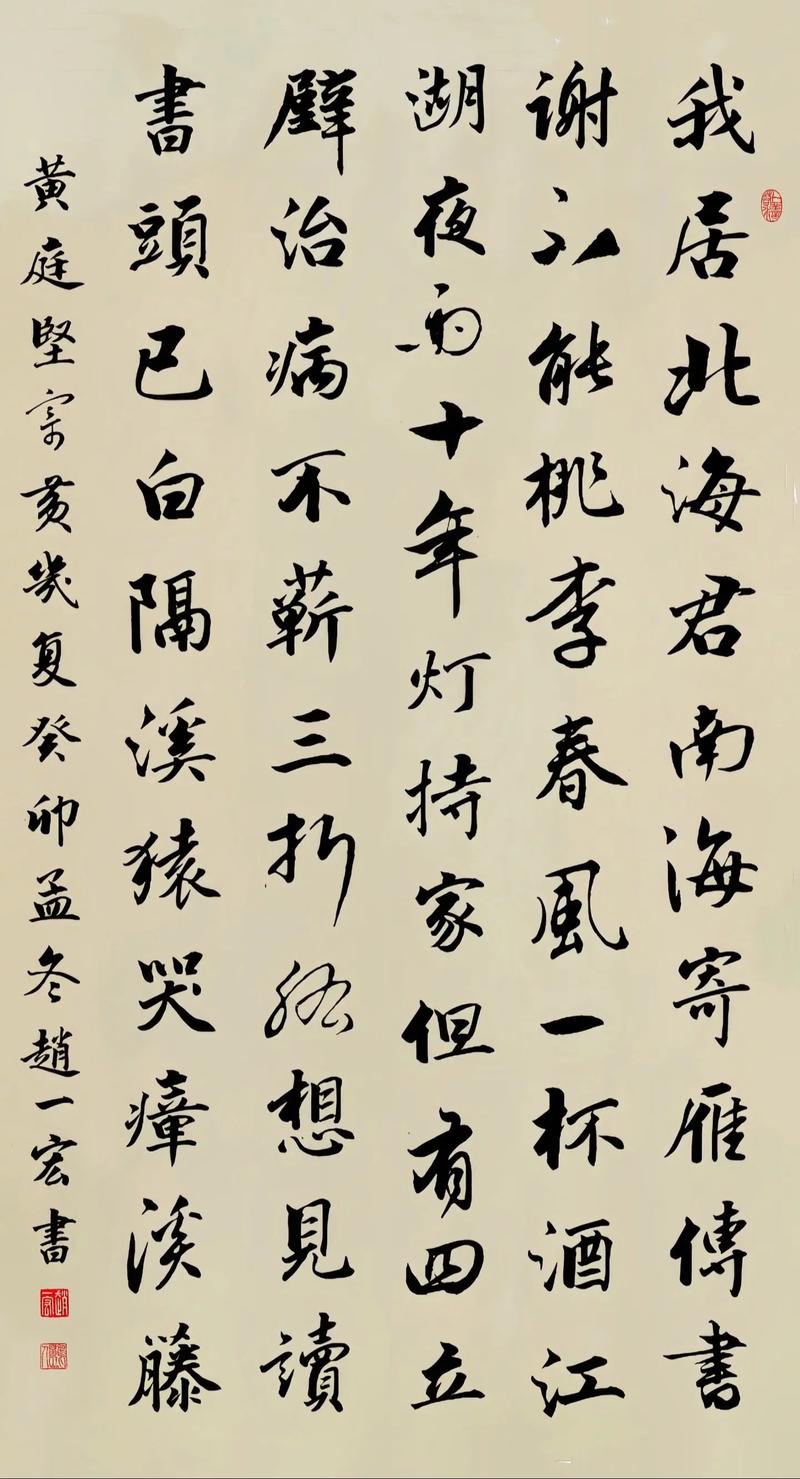 我居北海君南海寄雁傳書
謝不能桃李春風一杯酒江
湖夜雨十年灯持家但有四立
壁治病不蘄三折肱想見讀
書頭已白隔溪猿哭瘴溪藤
黄庭堅寄黄幾复癸卯孟冬趙一宏書